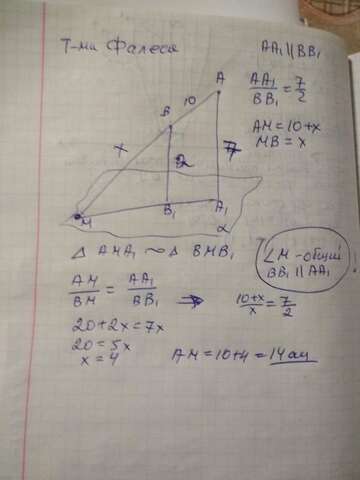 Т-ма Фалеса
AA₁ || BB₁
AA₁/BB₁ = 7/2
AM = 10+x
MB = x
A
10
B
x
2
7
M
B₁
A₁
α
Δ AMA₁ ~ Δ BMB₁
∠M - общий
BB₁ || AA₁
AM/BM = AA₁/BB₁ → (10+x)/x = 7/2
20+2x = 7x
20 = 5x
x = 4
AM = 10+4 = 14 см